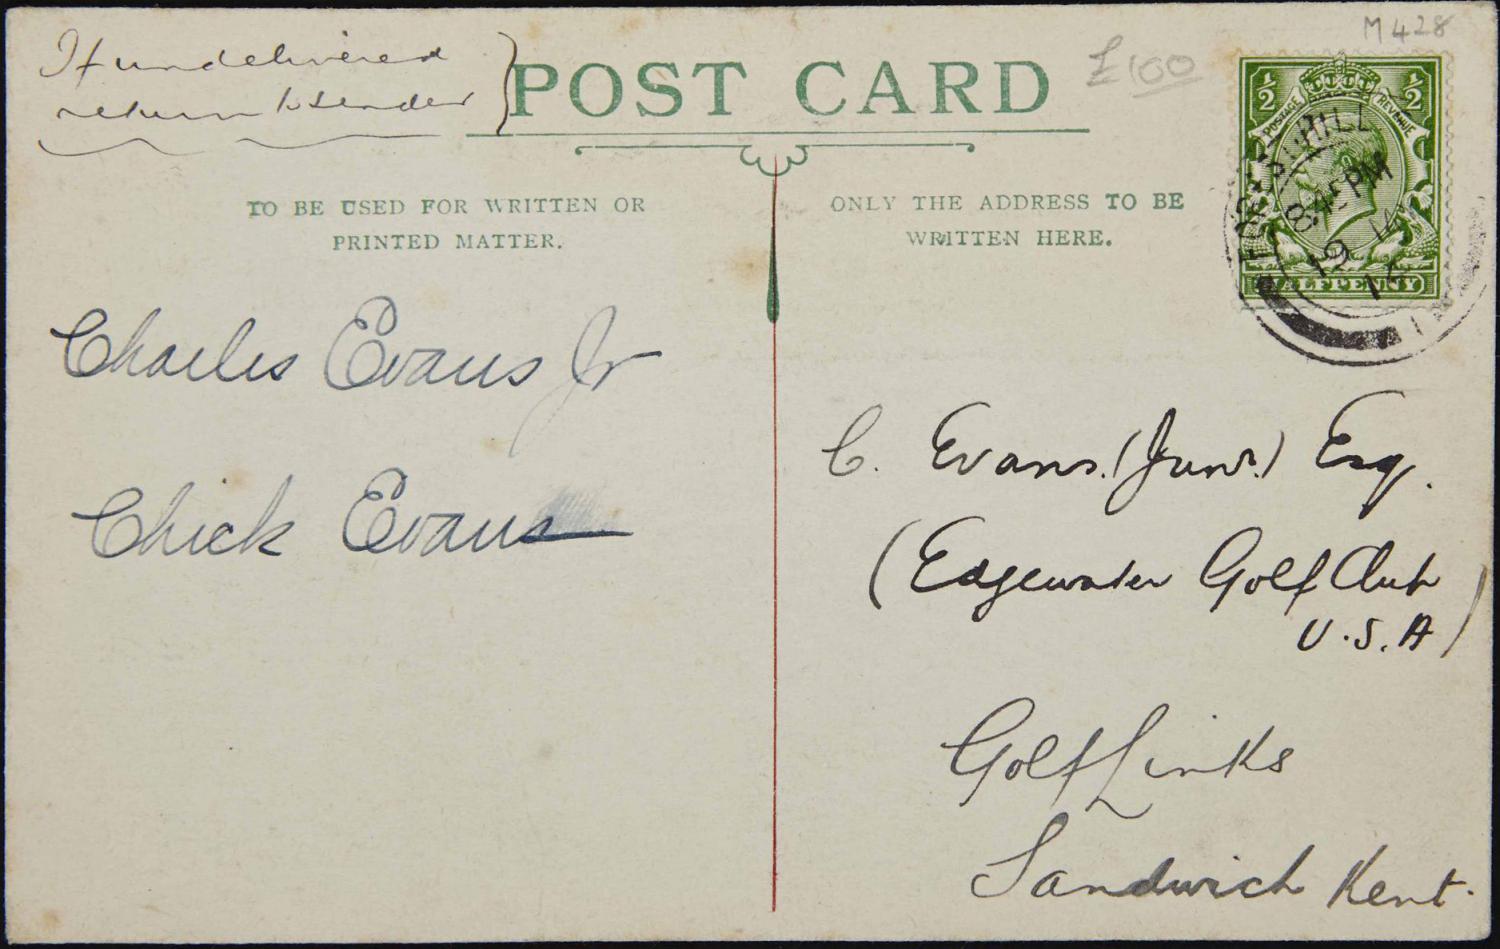 M 428
If undelivered
return to sender
POST CARD
£100
TO BE USED FOR WRITTEN OR
PRINTED MATTER.
ONLY THE ADDRESS TO BE
WRITTEN HERE.
½ ½
POSTAGE REVENUE
HALFPENNY
FOREST HILL
PM
19
Charles Evans Jr
Chick Evans
C. Evans. (Junr.) Esq.
(Edgewater Golf Club
U.S.A)
Golf Links
Sandwich Kent.